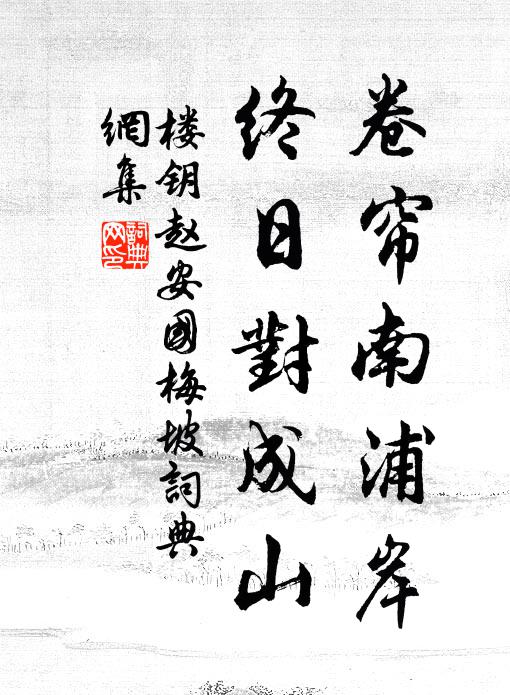 卷帘南浦岸
终日對成山
楼钥赵安國梅坡詞典
網集
詞典网印